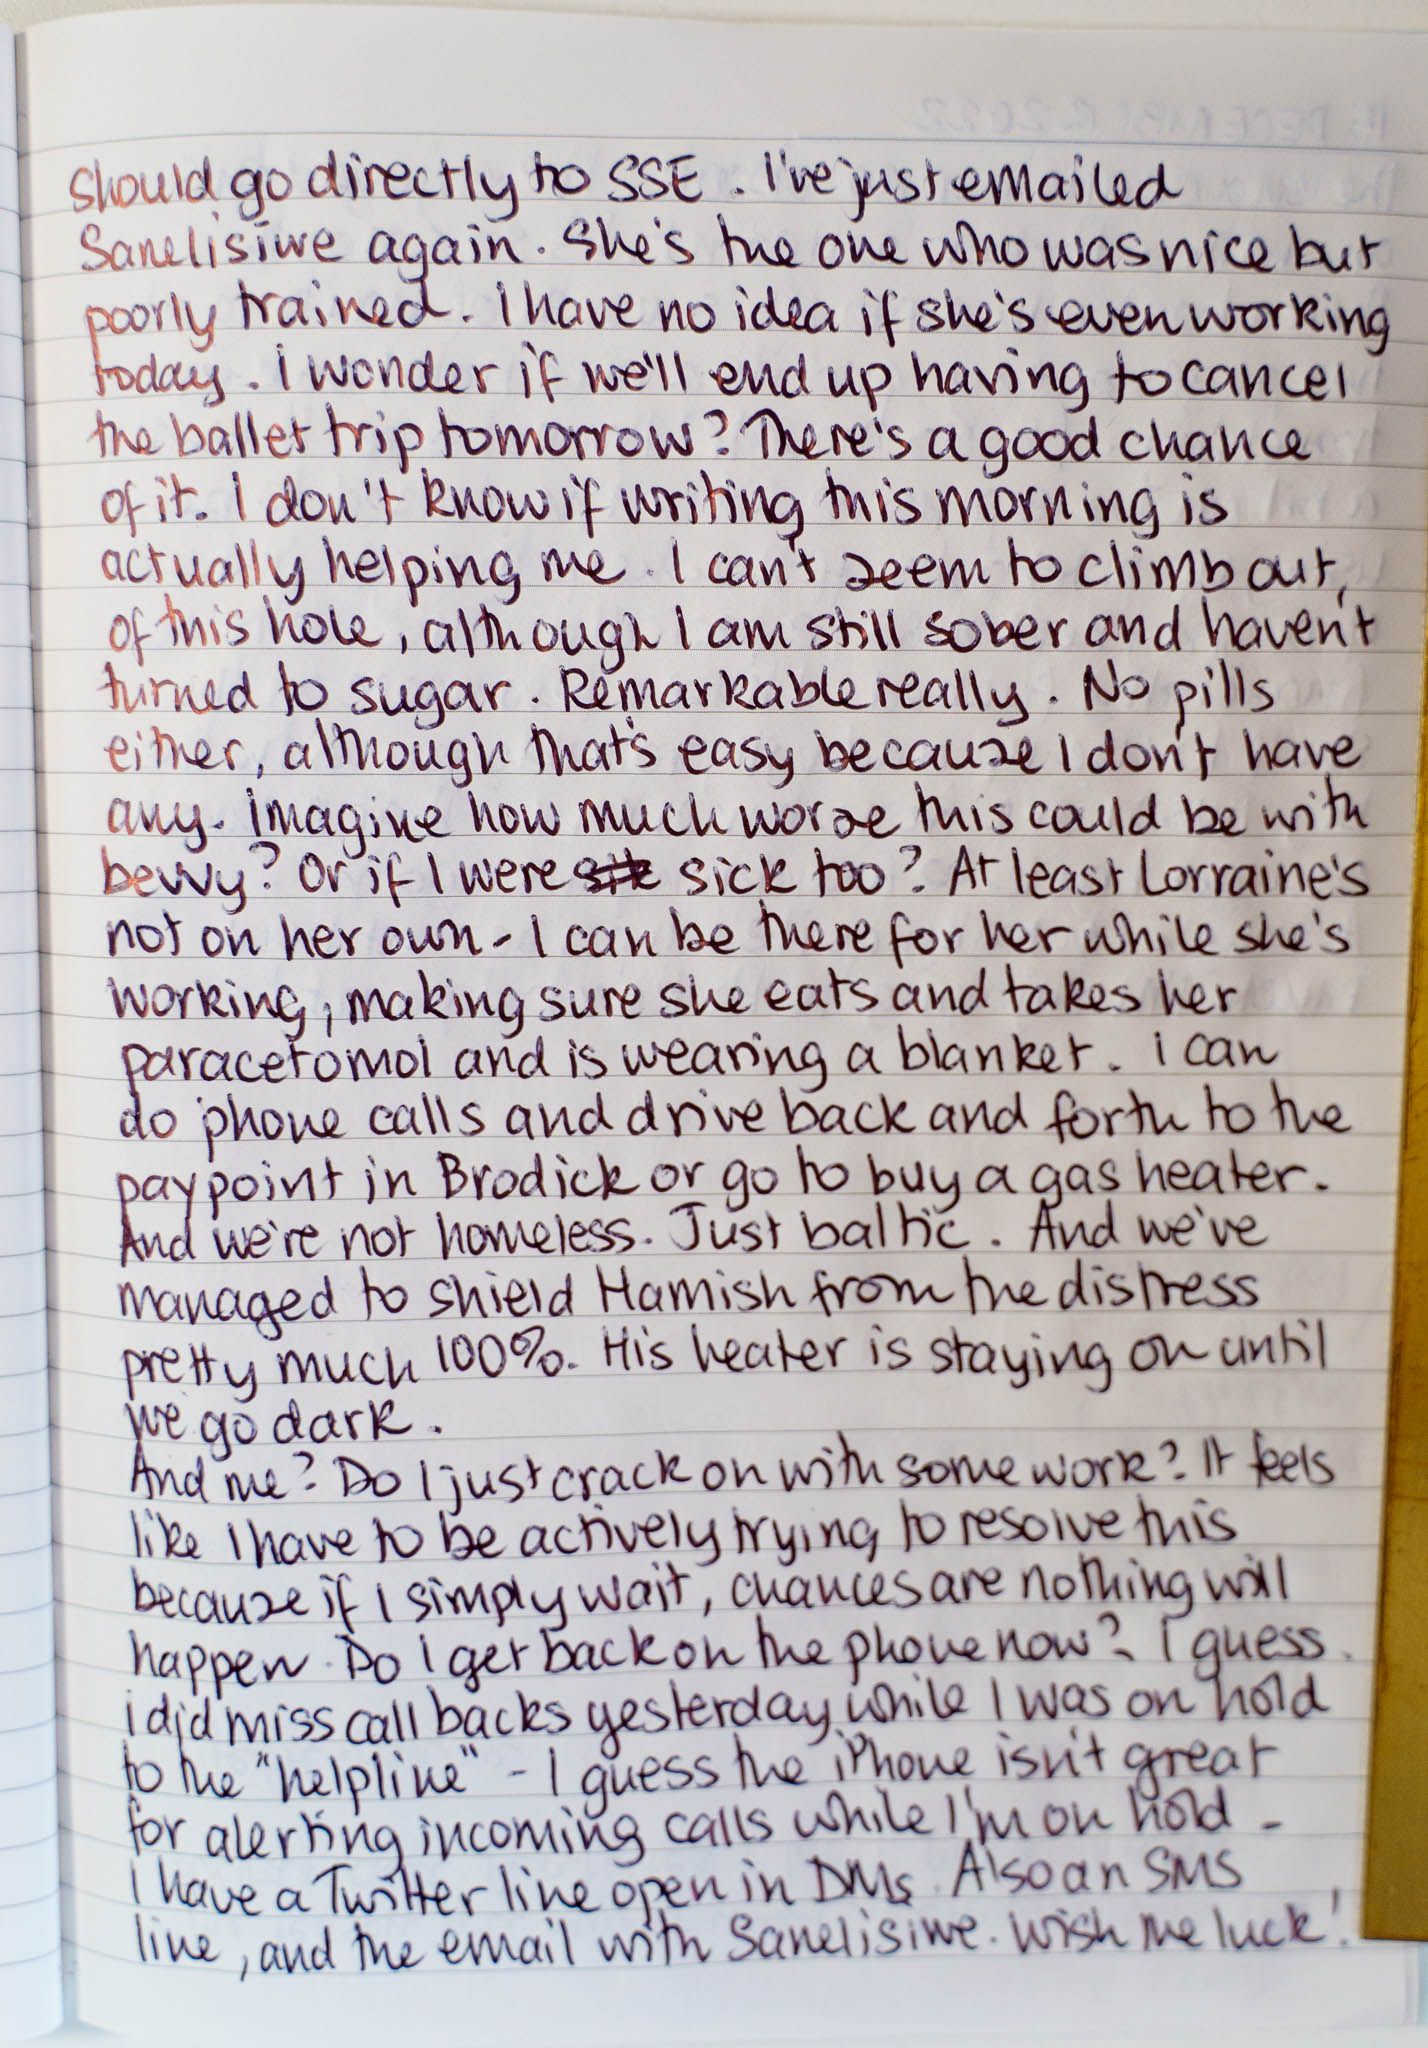 should go directly to SSE. I've just emailed
Sanelisiwe again. She's the one who was nice but
poorly trained. I have no idea if she's even working
today. I wonder if we'll end up having to cancel
the ballet trip tomorrow? There's a good chance
of it. I don't know if writing this morning is
actually helping me. I can't seem to climb out,
of this hole, although I am still sober and haven't
turned to sugar. Remarkable really. No pills
either, although that's easy because I don't have
any. Imagine how much worse this could be with
bevvy? Or if I were sick too? At least Lorraine's
not on her own - I can be there for her while she's
working, making sure she eats and takes her
paracetomol and is wearing a blanket. I can
do phone calls and drive back and forth to the
paypoint in Brodick or go to buy a gas heater.
And we're not homeless. Just baltic. And we've
managed to shield Hamish from the distress
pretty much 100%. His heater is staying on until
we go dark.
And me? Do I just crack on with some work? It feels
like I have to be actively trying to resolve this
because if I simply wait, chances are nothing will
happen. Do I get back on the phone now? I guess.
I did miss call backs yesterday while I was on hold
to the "helpline" - I guess the iPhone isn't great
for alerting incoming calls while I'm on hold -
I have a Twitter line open in DMs. Also an SMS
line, and the email with Sanelisiwe. Wish me luck!